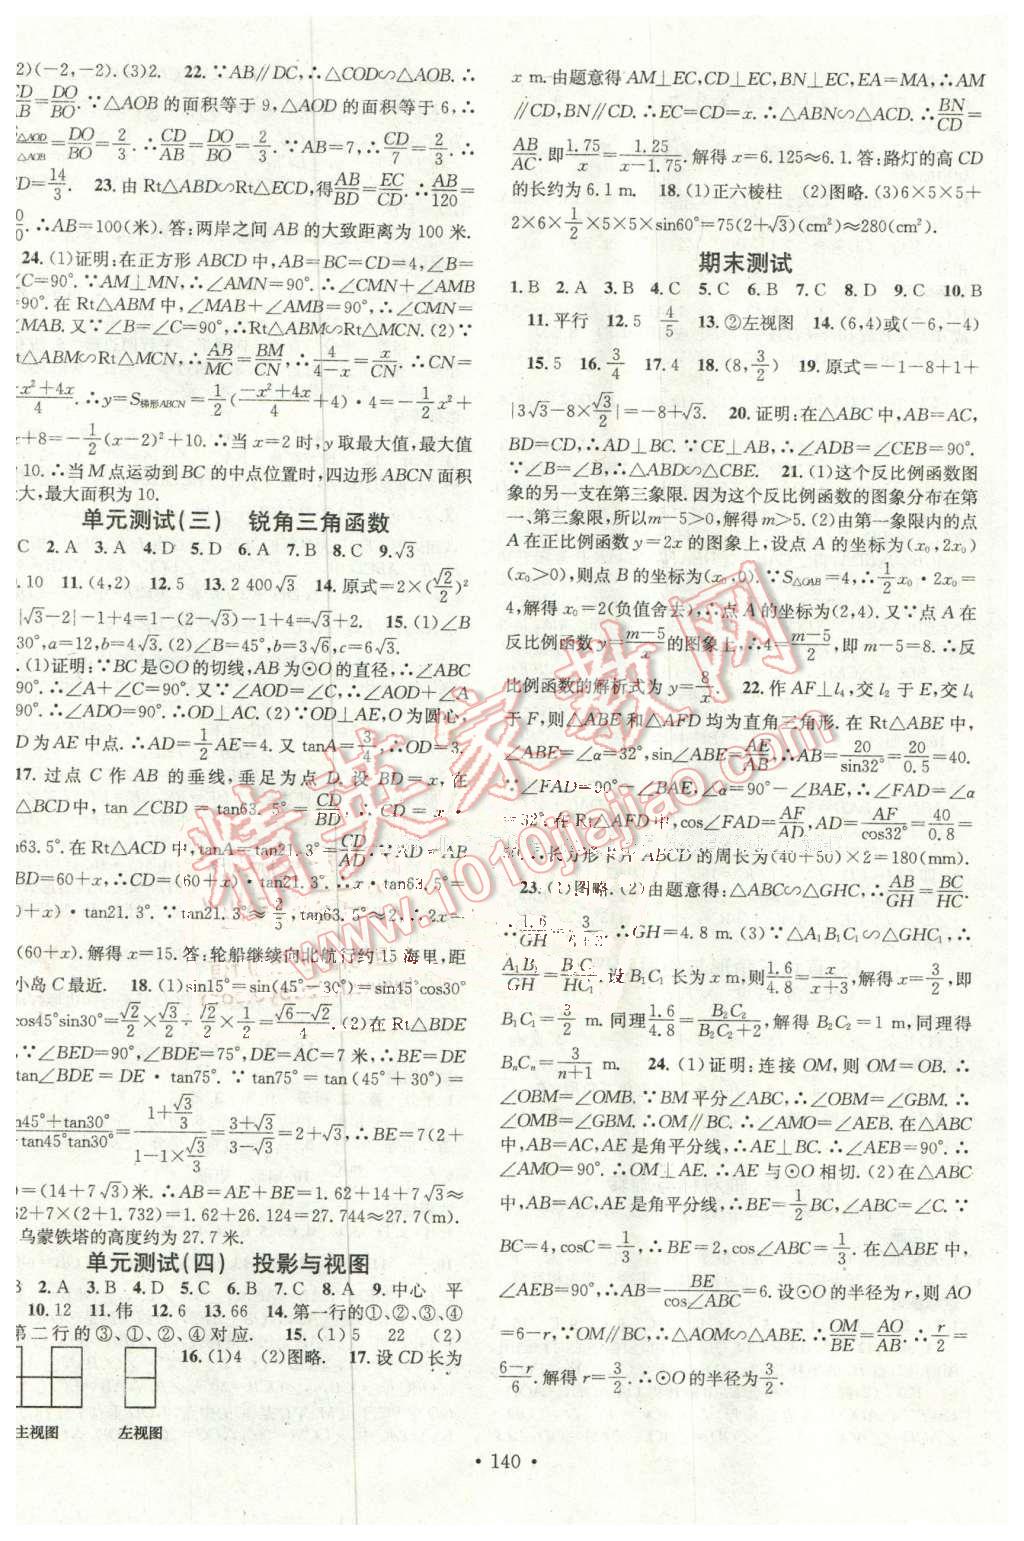 2)(-2,-2). (3)2.　22. ∵AB∥DC,∴△COD∽△AOB. ∴
CD/AB=DO/BO. ∵△AOB 的面积等于 9,△AOD 的面积等于 6,∴
S△AOD/S△AOB=DO/BO=2/3. ∴CD/AB=DO/BO=2/3. ∵AB=7,∴CD/7=2/3. ∴
CD=14/3.　23. 由 Rt△ABD∽Rt△ECD,得AB/BD=EC/CD. ∴AB/120=
∴AB=100(米). 答:两岸之间 AB 的大致距离为 100 米.
24. (1)证明:在正方形 ABCD 中,AB=BC=CD=4,∠B=
∠C=90°. ∵AM⊥MN,∴∠AMN=90°. ∴∠CMN+∠AMB
=90°. 在 Rt△ABM 中,∠MAB+∠AMB=90°,∴∠CMN=
∠MAB. 又∵∠B=∠C=90°,∴Rt△ABM∽Rt△MCN. (2)∵
Rt△ABM∽Rt△MCN,∴AB/MC=BM/CN. ∴4/(4-x)=x/CN. ∴CN=
(-x²+4x)/4. ∴y=S梯形ABCN=1/2((-x²+4x)/4+4)·4=-1/2x²+
x+8=-1/2(x-2)²+10. ∴当 x=2 时,y 取最大值,最大值
为 10. ∴当 M 点运动到 BC 的中点位置时,四边形 ABCN 面积
最大,最大面积为 10.
单元测试(三)　锐角三角函数
C　2. A　3. A　4. D　5. D　6. A　7. B　8. C　9. √3
. 10　11. (4,2)　12. 5　13. 2 400√3　14. 原式=2×(√2/2)²
|√3-2|-1+4=1-(2-√3)-1+4=√3+2.　15. (1)∠B
30°,a=12,b=4√3. (2)∠B=45°,b=3√6,c=6√3.
. (1)证明:∵BC 是⊙O 的切线,AB 为⊙O 的直径,∴∠ABC
90°. ∴∠A+∠C=90°. 又∵∠AOD=∠C,∴∠AOD+∠A=
90°. ∴∠ADO=90°. ∴OD⊥AC. (2)∵OD⊥AE,O 为圆心,
D 为 AE 中点. ∴AD=1/2AE=4. 又 tanA=3/4,∴OD=3.
17. 过点 C 作 AB 的垂线,垂足为点 D. 设 BD=x,在
△BCD中,tan ∠CBD=tan63. 5°=CD/BD. ∴CD=x·
n63. 5°. 在 Rt△ACD 中,tanA=tan21. 3°=CD/AD. ∵AD=AB
BD=60+x,∴CD=(60+x)·tan21. 3°. ∴x·tan63. 5°=
0+x)·tan21. 3°. ∵tan21. 3°≈2/5,tan63. 5°≈2,∴2x=
(60+x). 解得 x=15. 答:轮船继续向北航行约 15 海里,距
小岛 C 最近.　18. (1)sin15°=sin(45°-30°)=sin45°cos30°
cos45°sin30°=√2/2×√3/2-√2/2×1/2=(√6-√2)/4. (2)在 Rt△BDE
,∵∠BED=90°,∠BDE=75°,DE=AC=7 米,∴BE=DE
tan∠BDE=DE·tan75°. ∵tan75°=tan(45°+30°)=
(tan45°+tan30°)/(1-tan45°tan30°)=(1+√3/3)/(1-1×√3/3)=(3+√3)/(3-√3)=2+√3,∴BE=7(2+
)=(14+7√3)米. ∴AB=AE+BE=1. 62+14+7√3≈
62+7×(2+1. 732)=1. 62+26. 124=27. 744≈27. 7(m).
乌蒙铁塔的高度约为 27. 7 米.
单元测试(四)　投影与视图
B　2. A　3. B　4. D　5. C　6. B　7. C　8. A　9. 中心　平
10. 12　11. 伟　12. 6　13. 66　14. 第一行的①、②、③、④
第二行的③、①、②、④对应.　15. (1)5　22　(2)
16. (1)4　(2)图略.　17. 设 CD 长为
主视图　左视图
x m. 由题意得 AM⊥EC,CD⊥EC,BN⊥EC,EA=MA,∴AM
∥CD,BN∥CD. ∴EC=CD=x. ∴△ABN∽△ACD. ∴BN/CD=
AB/AC. 即1. 75/x=1. 25/(x-1. 75). 解得 x=6. 125≈6. 1. 答:路灯的高 CD
的长约为 6. 1 m.　18. (1)正六棱柱　(2)图略. (3)6×5×5+
2×6×1/2×5×5×sin60°=75(2+√3)(cm²)≈280(cm²).
期末测试
1. B　2. A　3. B　4. C　5. C　6. B　7. C　8. D　9. C　10. B
11. 平行　12. 5　4/5　13. ②左视图　14. (6,4)或(-6,-4)
15. 5　16. 3/4　17. 4　18. (8,3/2)　19. 原式=-1-8+1+
|3√3-8×√3/2|=-8+√3.　20. 证明:在△ABC 中,AB=AC,
BD=CD,∴AD⊥BC. ∵CE⊥AB,∴∠ADB=∠CEB=90°.
∵∠B=∠B,∴△ABD∽△CBE.　21. (1)这个反比例函数图
象的另一支在第三象限. 因为这个反比例函数的图象分布在第
一、第三象限,所以 m-5>0,解得 m>5. (2)由第一象限内的点
A 在正比例函数 y=2x 的图象上,设点 A 的坐标为(x₀,2x₀)
(x₀>0),则点 B 的坐标为(x₀,0). ∵S△OAB=4,∴1/2x₀·2x₀=
4,解得 x₀=2(负值舍去),∴点 A 的坐标为(2,4). 又∵点 A 在
反比例函数 y=(m-5)/x的图象上,∴4=(m-5)/2,即 m-5=8. ∴反
比例函数的解析式为 y=8/x.　22. 作 AF⊥l₄,交 l₂ 于 E,交 l₄
于 F,则△ABE 和△AFD 均为直角三角形. 在 Rt△ABE 中,
∠ABE=∠α=32°,sin∠ABE=AE/AB,∴AB=20/sin32°=20/0. 5=40.
∵∠FAD=90°-∠BAE,∠α=90°-∠BAE,∴∠FAD=∠α
=32°. 在 Rt△AFD 中,cos∠FAD=AF/AD,AD=AF/cos32°=40/0. 8=
50. ∴长方形卡片 ABCD 的周长为(40+50)×2=180(mm).
23. (1)图略. (2)由题意得:△ABC∽△GHC,∴AB/GH=BC/HC.
∴1. 6/GH=3/ ∴GH=4. 8 m. (3)∵△A₁B₁C₁∽△GHC₁,∴
A₁B₁/GH=B₁C₁/HC₁. 设 B₁C₁ 长为 x m,则1. 6/4. 8=x/(x+3),解得 x=3/2,即
B₁C₁=3/2 m. 同理1. 6/4. 8=B₂C₂/(B₂C₂+2),解得 B₂C₂=1 m,同理得
BₙCₙ=3/(n+1) m.　24. (1)证明:连接 OM,则 OM=OB. ∴
∠OBM=∠OMB. ∵BM 平分∠ABC,∴∠OBM=∠GBM. ∴
∠OMB=∠GBM. ∴OM∥BC. ∴∠AMO=∠AEB. 在△ABC
中,AB=AC,AE 是角平分线,∴AE⊥BC. ∴∠AEB=90°. ∴
∠AMO=90°. ∴OM⊥AE. ∴AE 与⊙O 相切. (2)在△ABC
中,AB=AC,AE 是角平分线,∴BE=1/2BC,∠ABC=∠C. ∵
BC=4,cosC=1/3,∴BE=2,cos∠ABC=1/3. 在△ABE 中,
∠AEB=90°,∴AB=BE/cos∠ABC=6. 设⊙O 的半径为 r,则 AO
=6-r,∵OM∥BC,∴△AOM∽△ABE. ∴OM/BE=AO/AB. ∴r/2=
(6-r)/6. 解得 r=3/2. ∴⊙O 的半径为3/2.
· 140 ·
精英家教网
www.1010jiajiao.com